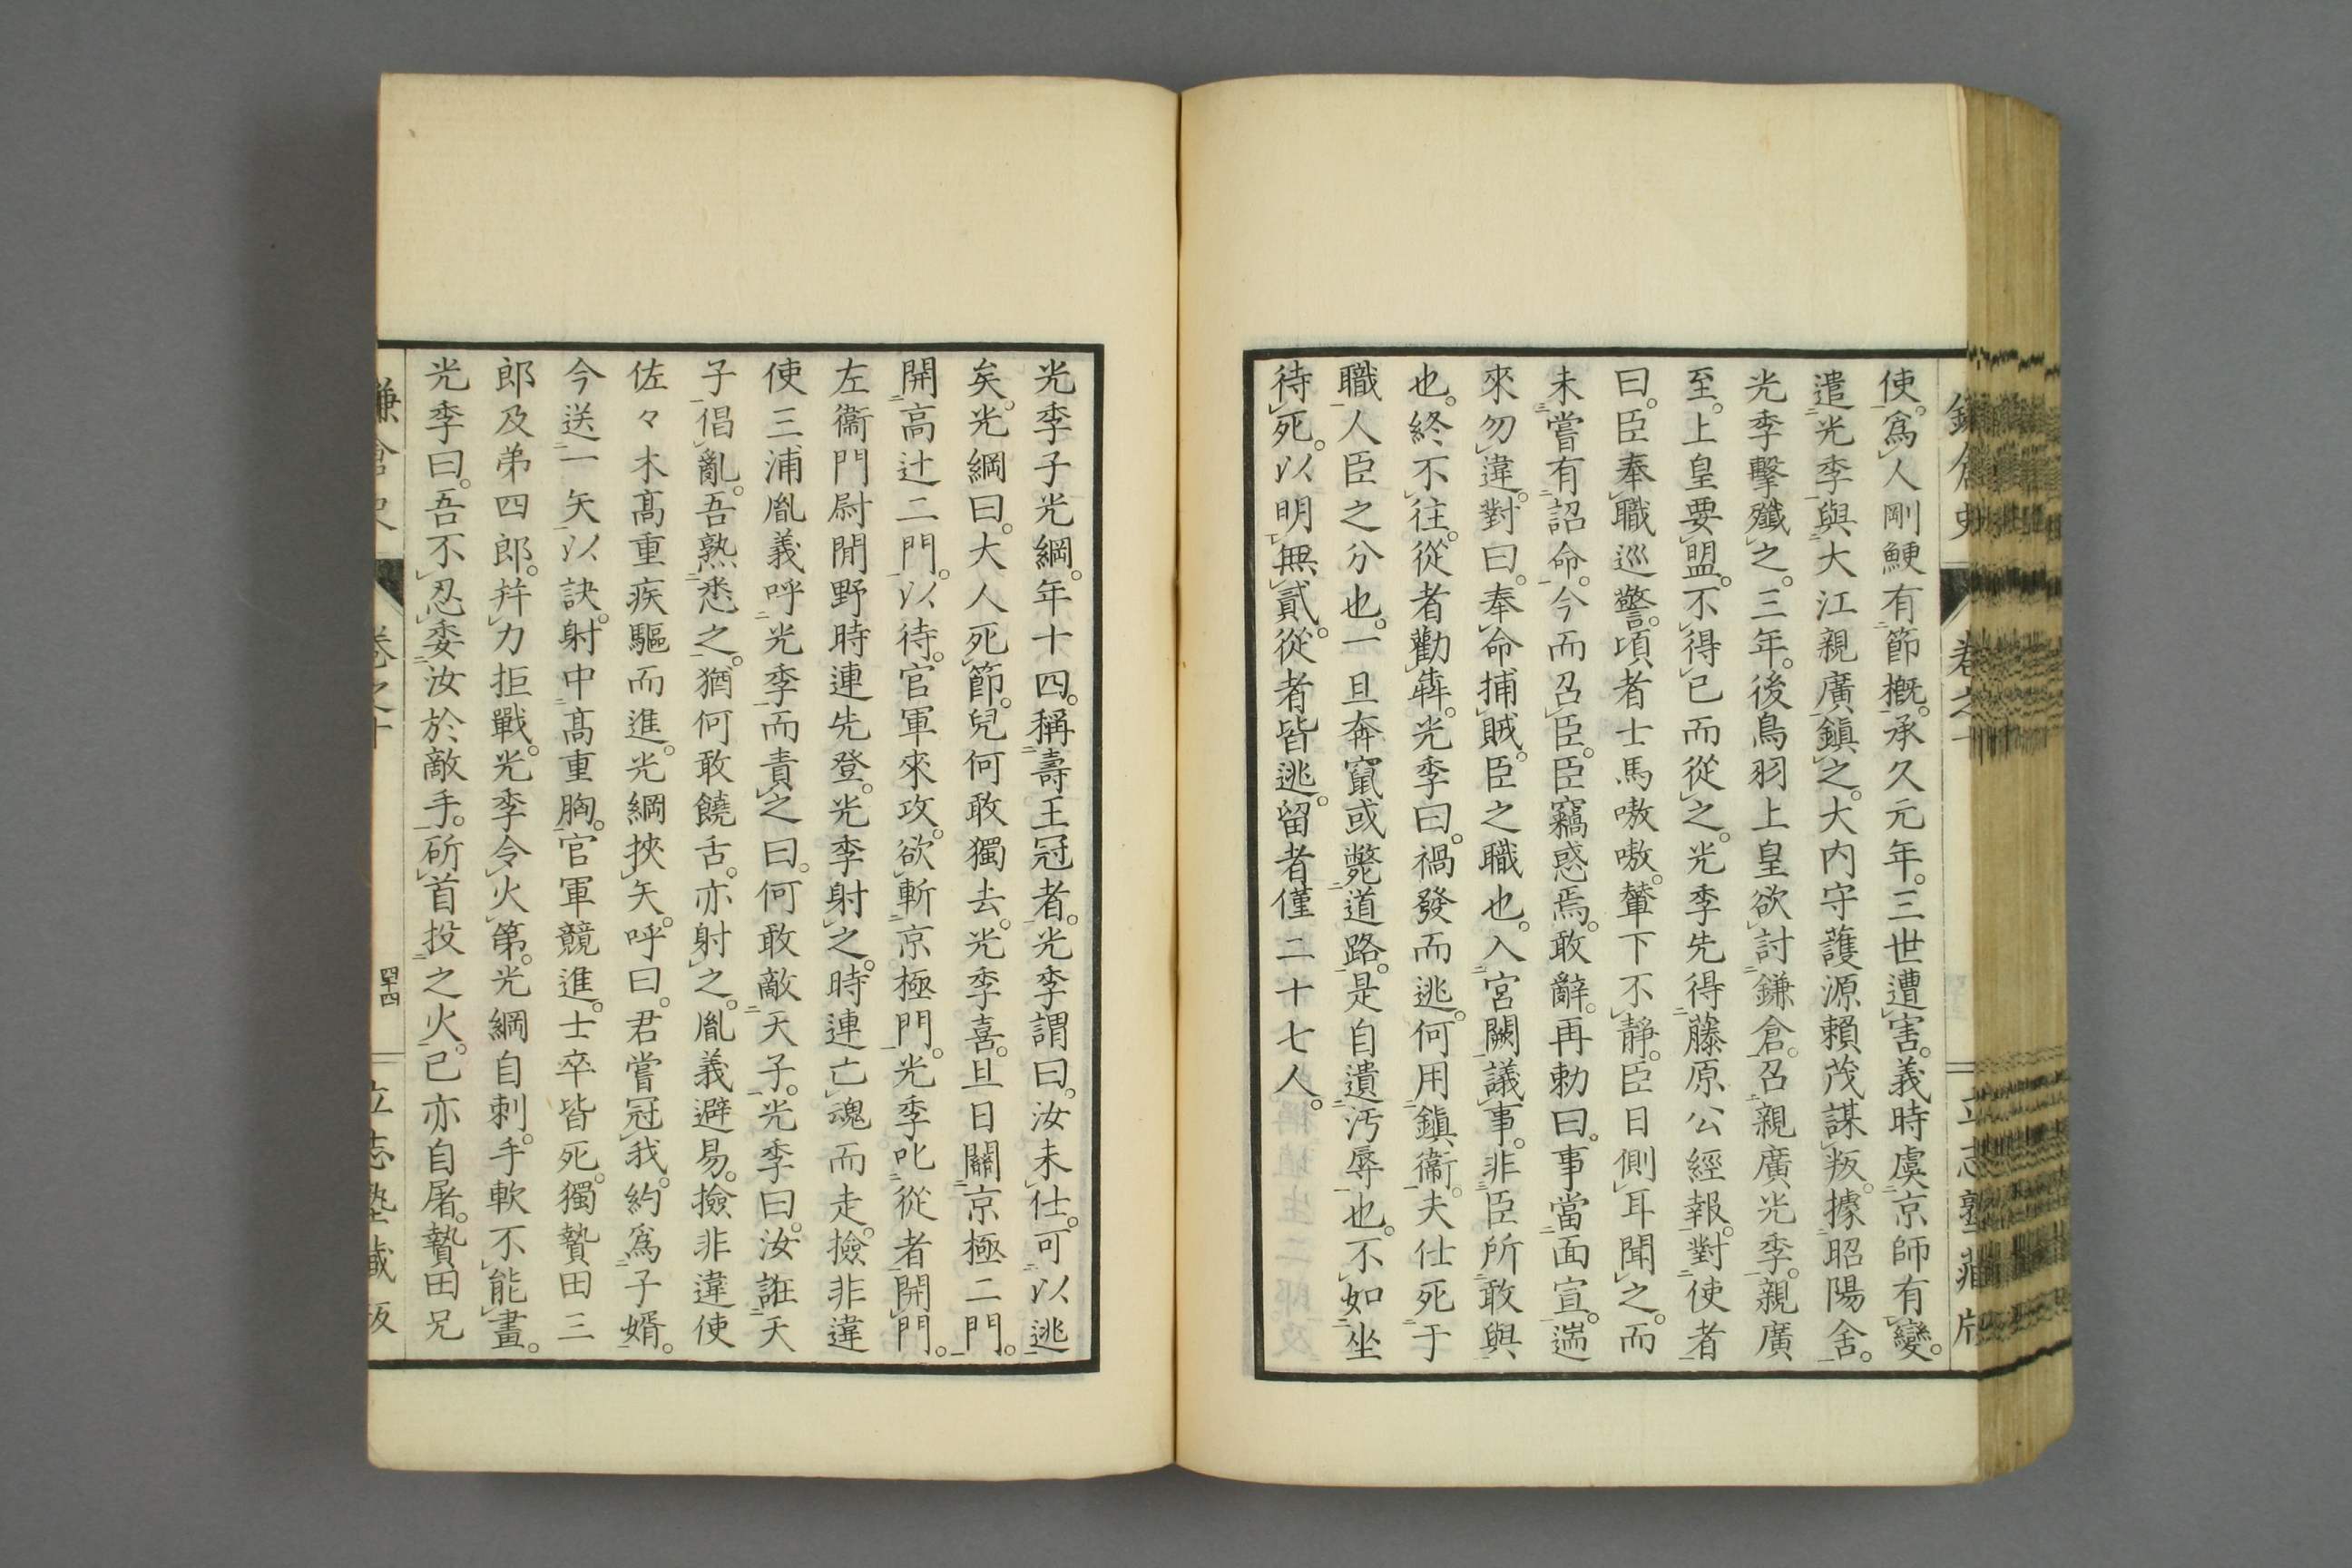 鎌倉史 卷之十 立志塾藏版
使。爲人剛鯁有節概。承久元年。三世遭害。義時虞京師有變。
遣光季與大江親廣鎭之。大内守護源賴茂謀叛。據昭陽舍。
光季擊殲之。三年。後鳥羽上皇欲討鎌倉。召親廣光季。親廣
至。上皇要盟。不得已而從之。光季先得藤原公經報。對使者
曰。臣奉職巡警。頃者士馬嗷嗷。輦下不靜。臣日側耳聞之。而
未嘗有詔命。今而召臣。臣竊惑焉。敢辭。再勅曰。事當面宣。遄
來勿違。對曰。奉命捕賊。臣之職也。入宮闕議事。非臣所敢與
也。終不往。從者勸犇。光季曰。禍發而逃。何用鎭衞。夫仕死于
職。人臣之分也。一旦奔竄或斃道路。是自遺汚辱也。不如坐
待死。以明無貳。從者皆逃。留者僅二十七人。
光季子光綱。年十四。稱壽王冠者。光季謂曰。汝未仕。可以逃
矣。光綱曰。大人死節。兒何敢獨去。光季喜。旦日關京極二門。
開高辻二門。以待。官軍來攻。欲斬京極門。光季叱從者開門。
左衞門尉間野時連先登。光季射之。時連亡魂而走。撿非違
使三浦胤義呼光季而責之曰。何敢敵天子。光季曰。汝誑天
子倡亂。吾熟悉之。猶何敢饒舌。亦射之。胤義避易。撿非違使
佐々木高重疾驅而進。光綱挾矢。呼曰。君嘗冠我。約爲子婿。
今送一矢以訣。射中高重胸。官軍競進。士卒皆死。獨贄田三
郎及弟四郎。幷力拒戰。光季令火第。光綱自刺。手軟不能畫。
光季曰。吾不忍委汝於敵手。斫首投之火。已亦自屠。贄田兄
鎌倉史 卷之十 四十四 立志塾藏版